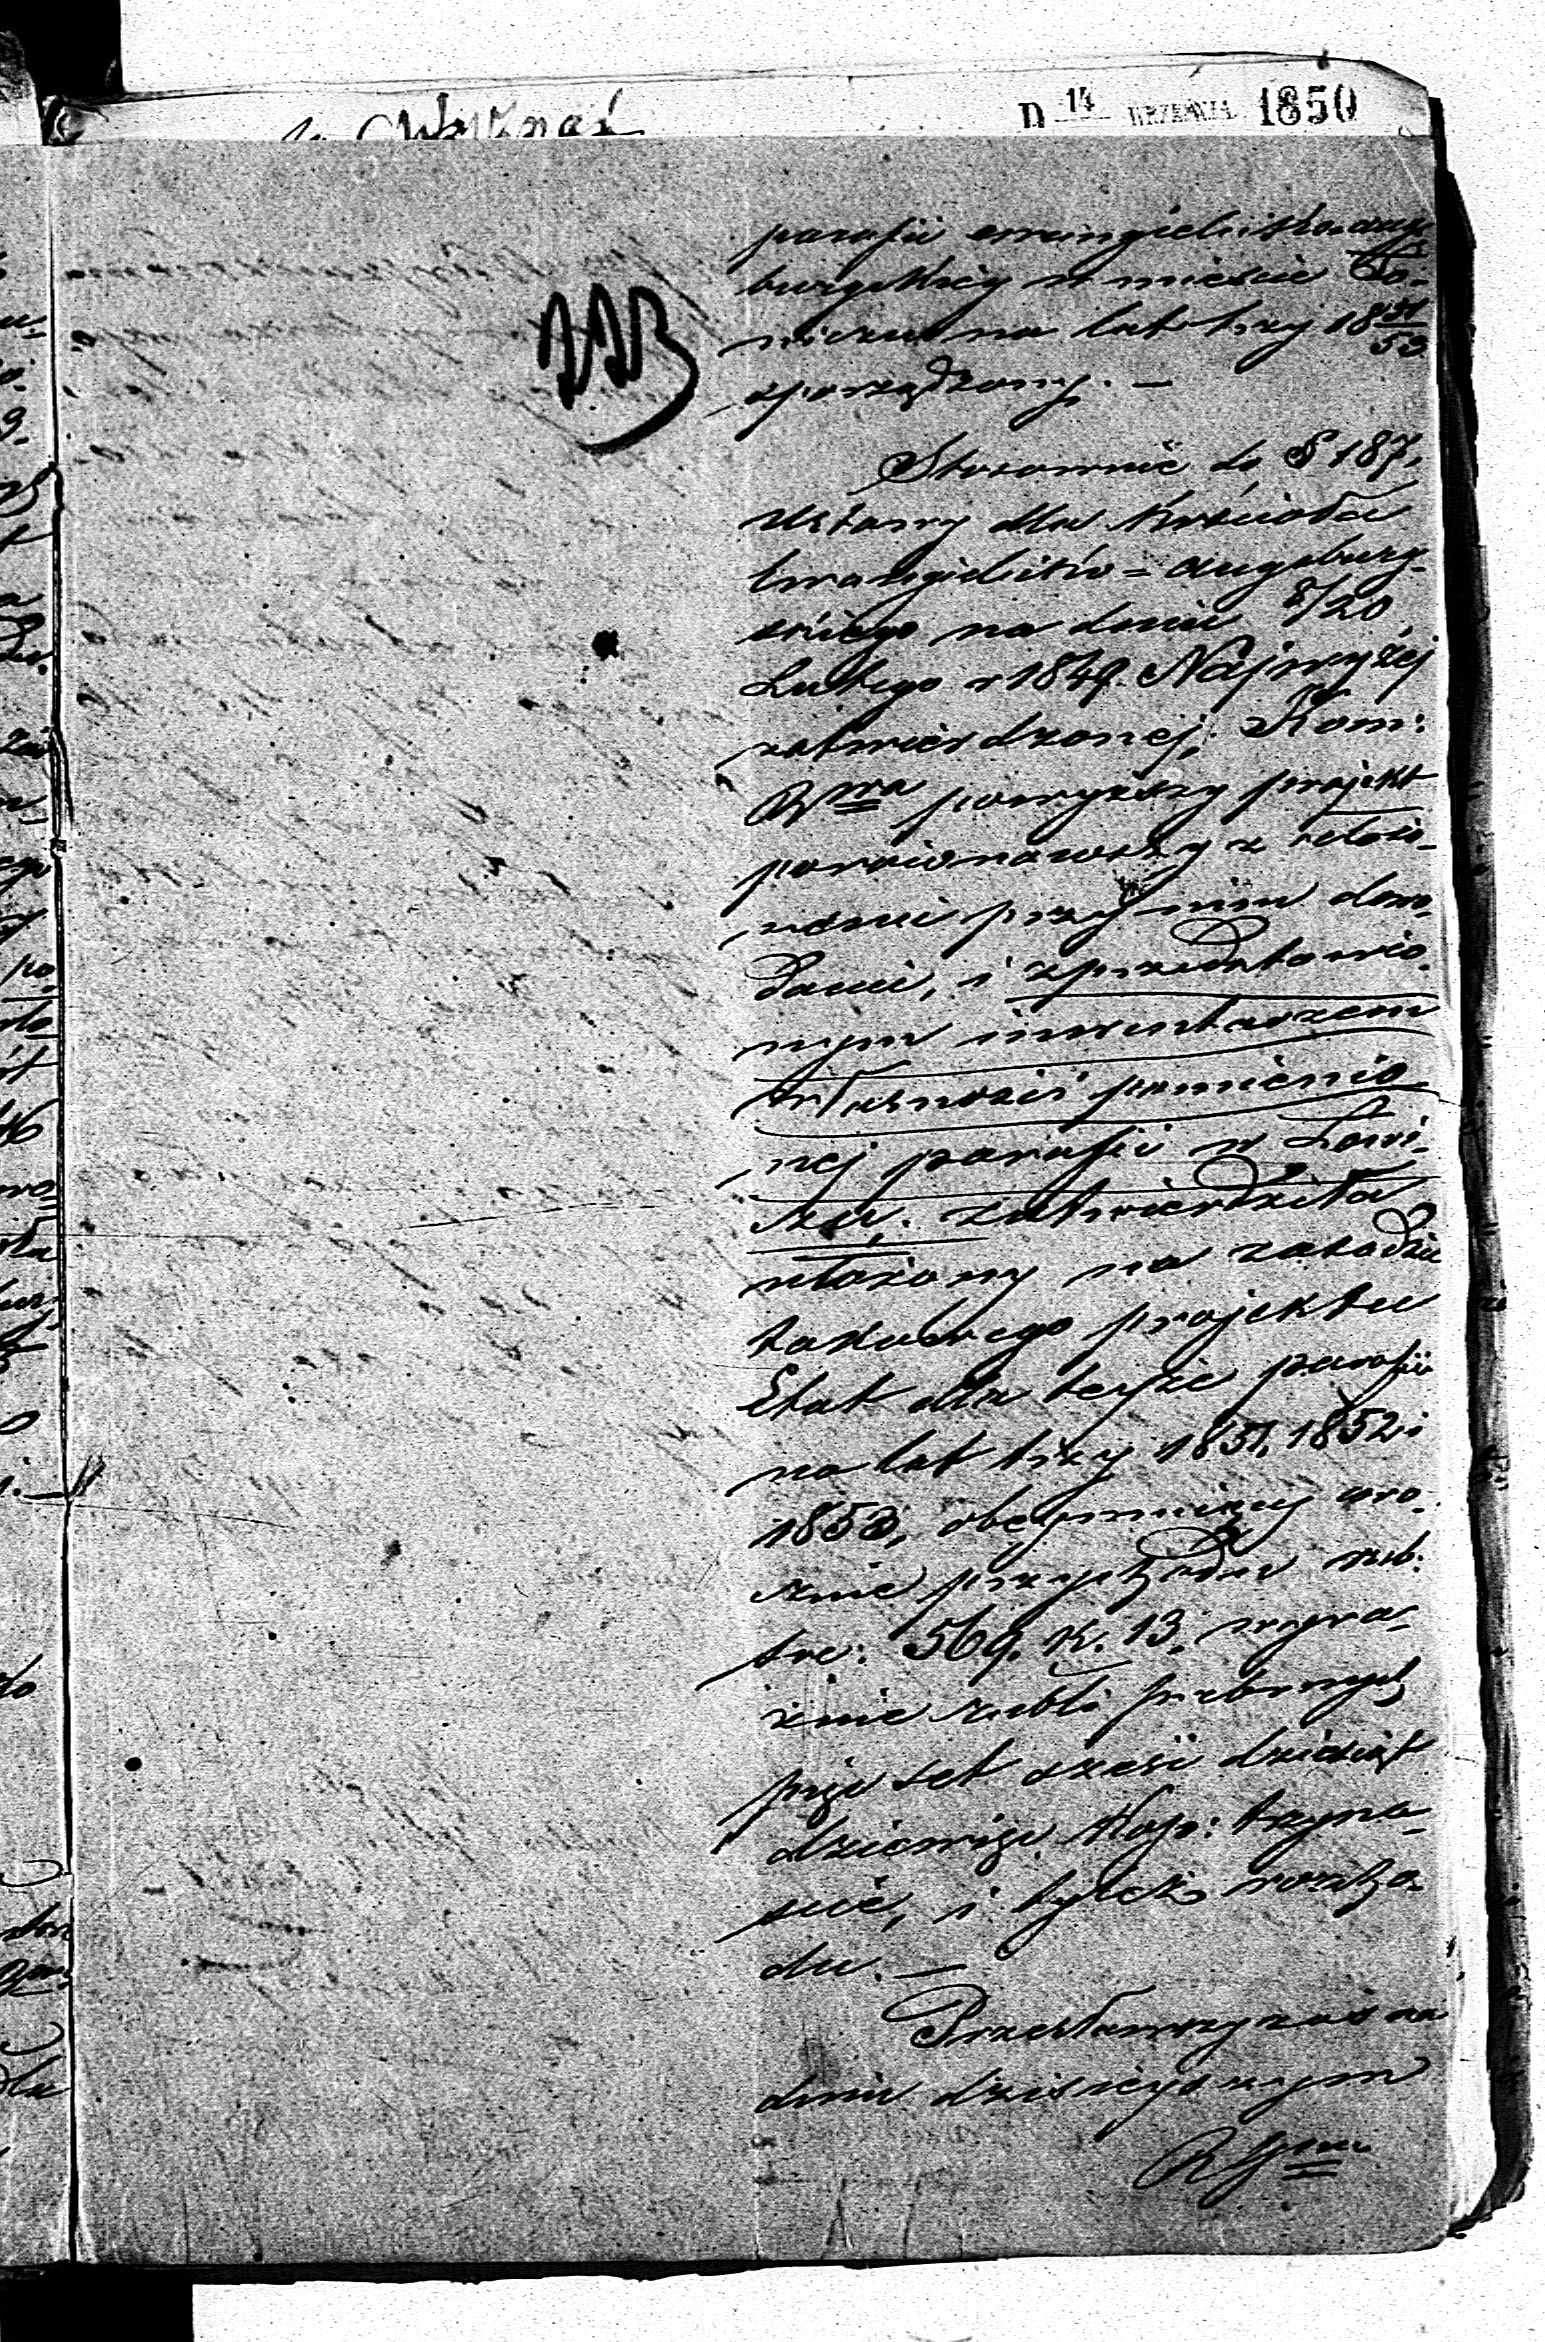 D 14 WRZEŚNIA 1850
parafii ewangielicko-augs
burgskiej w mieście Ło-
wiczu na lat trzy 18 51/53
sporządzony. —
Stosownie do § 187,
Ustawy dla Kościoła
Ewangielicko = Augsburg-
skiego na dniu 8/20
Lutego r 1849. Najwyżéj
zatwierdzonej, Kom:
Rwa powyższy projekt
porównawszy z
przy nim dowo-
dami, i z przedstawio-
nym inwentarzem
własności pomienio-
nej parafii w Łowi-
czu, zatwierdziła
ułożony na zasadzie
takowego projektu
Etat dla tejże parafii
na lat trzy 1851, 1852 i
1853, obejmujący ro-
cznie przychodu rub.
sre: 569. k. 13, wyra-
źnie rubli srebrnych
pięćset sześć dziesiąt
dziewięć Kop: trzyna-
ście, i tyleż rozcho-
du. —
Przesławszy zaś na
dniu dzisiejszym